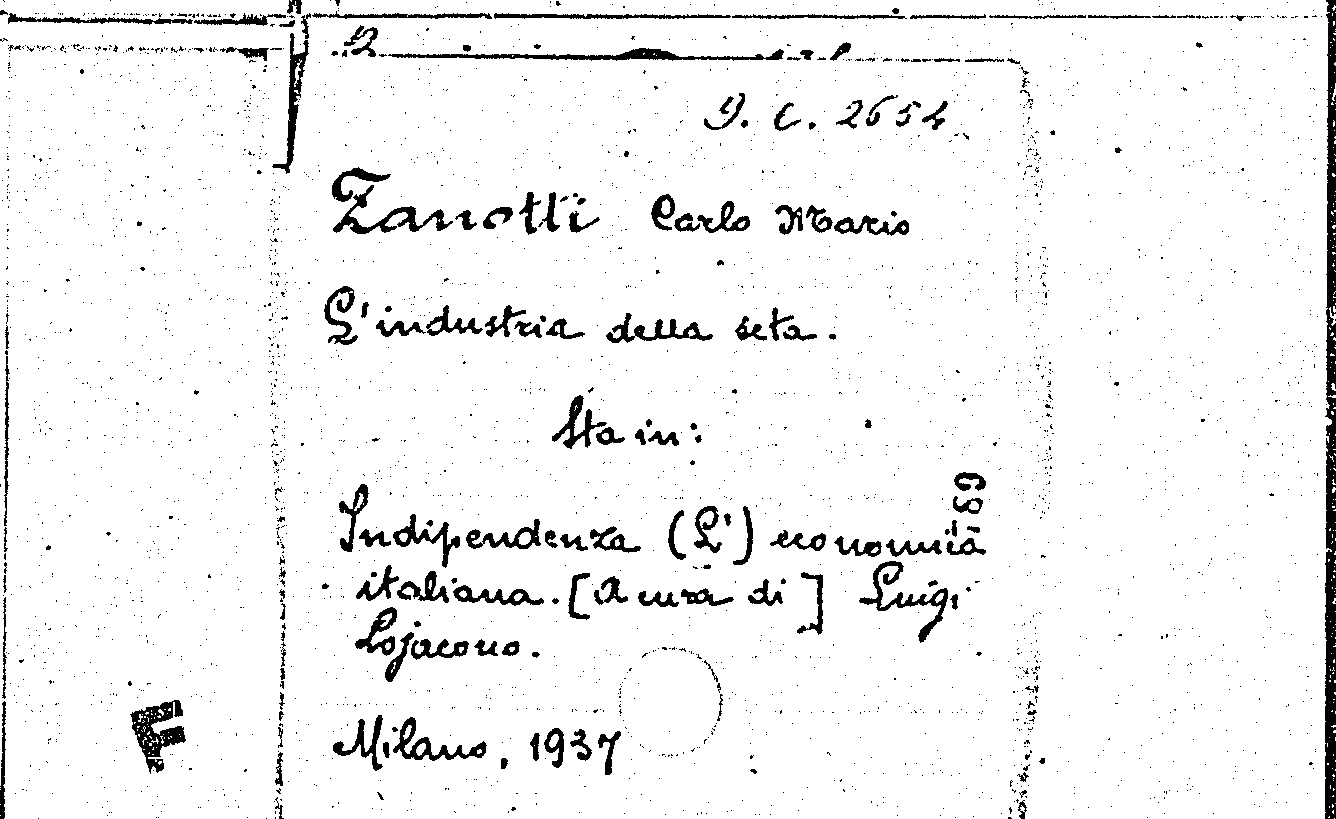 G. C. 2654
Zanotti Carlo Mario
L'industria della seta.
Sta in:
Indipendenza (L') economica
italiana. [A cura di] Luigi
Lojacono.
Milano, 1937